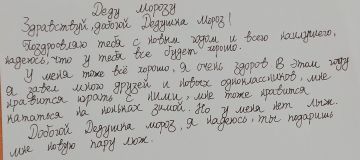 Деду Морозу
Здравствуй, добой Дедушка Мороз!
Поздровляю тебя с новым годам и всего наилучшего,
надеюсь, что у тебя все будет хорошо.
У меня тоже всё хорошо, я очень здоров В этом году
я завел много друзей и новых одноклассников, мне
нравится юрать с ними, мне тоже нравится
кататься на коньках зимой. Но у меня нет лыж.
Добобой Дедушка мороз, я надеюсь, ты подаришь
мне новую пару люж.